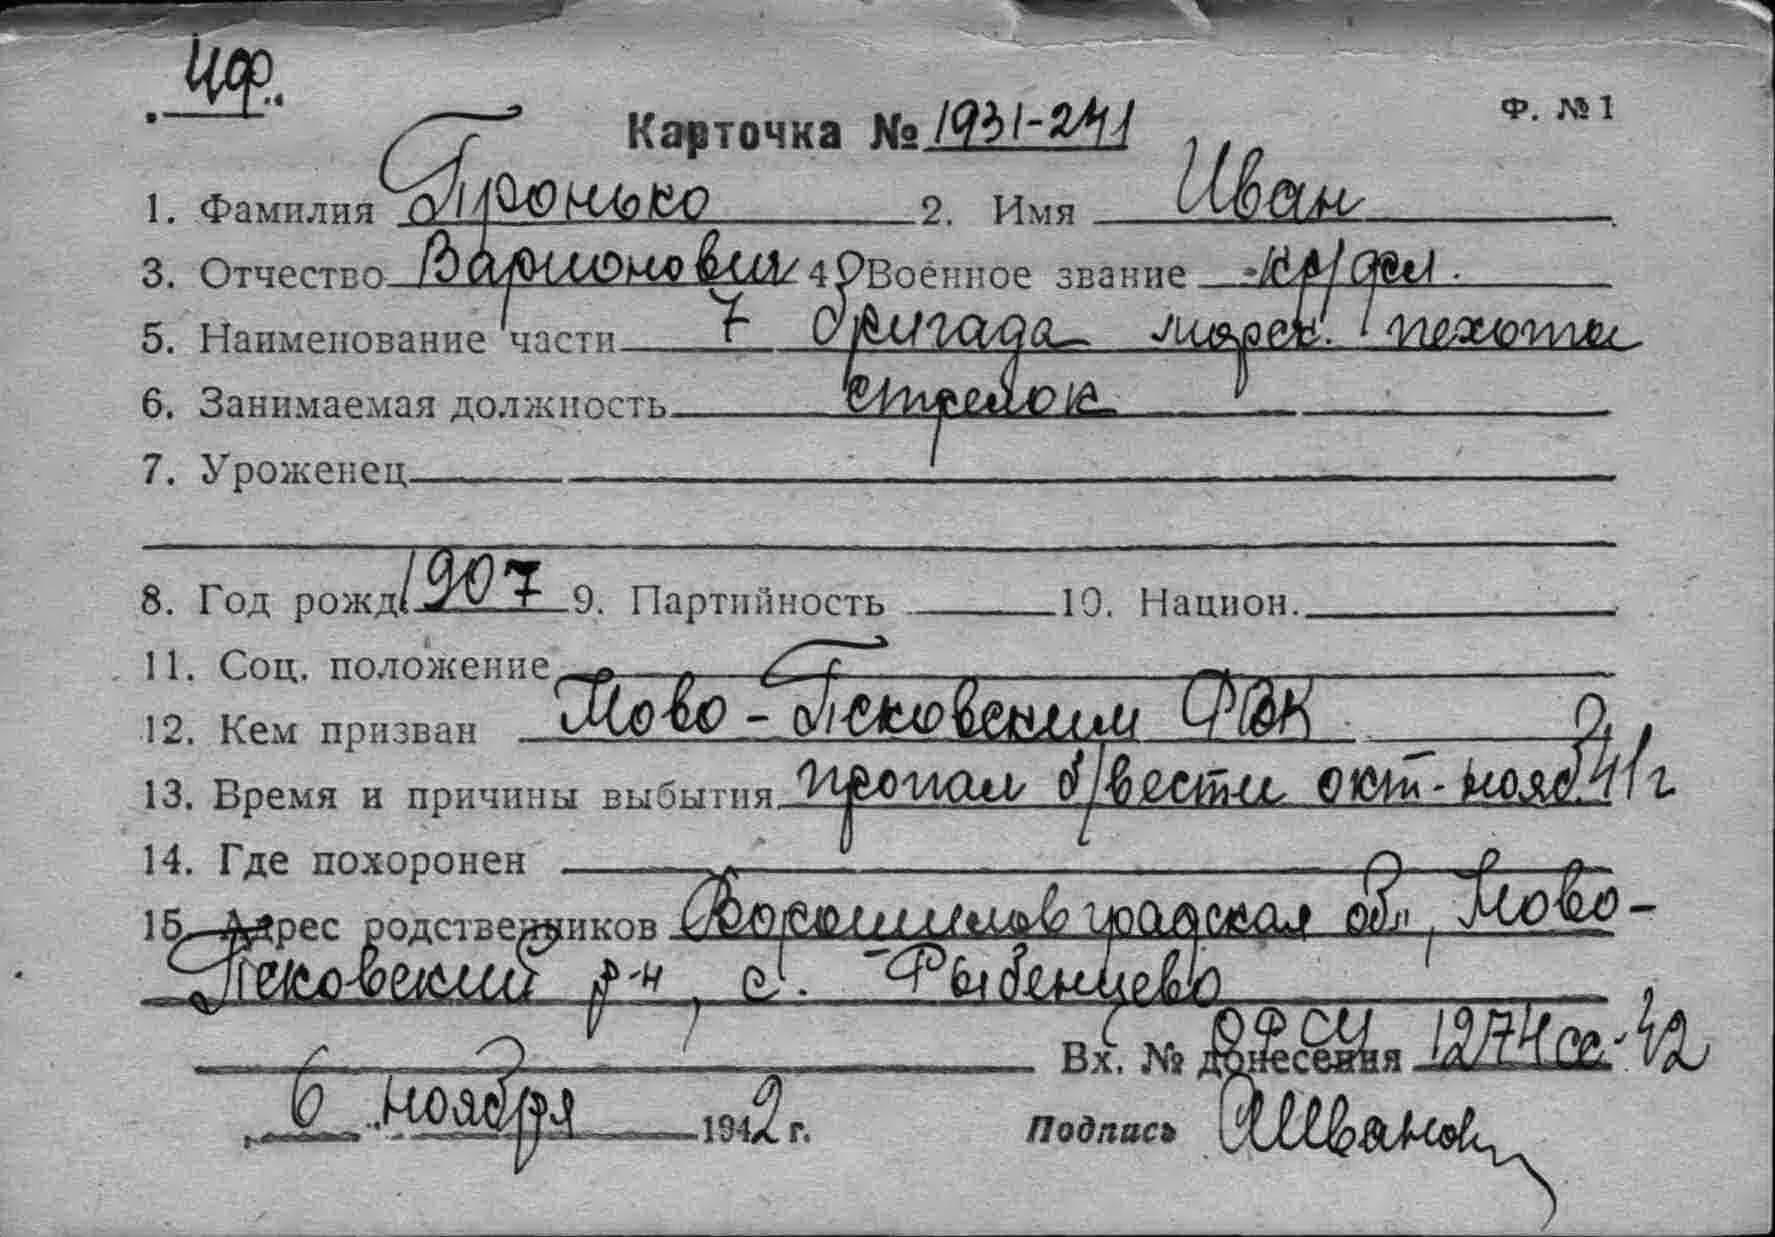 Ф. № 1
Карточка № 1931-241
1. Фамилия Пронько 2. Имя Иван
3. Отчество Варионович 4. Военное звание кр/фл.
5. Наименование части 7 бригада морск. пехоты
6. Занимаемая должность стрелок
7. Уроженец
8. Год рожд. 1907 9. Партийность 10. Национ.
11. Соц. положение
12. Кем призван Ново-Псковским РВК
13. Время и причины выбытия пропал б/вести окт-нояб. 41 г
14. Где похоронен
15. Адрес родственников Ворошиловградская обл, Ново-
Псковский р-н, с. Рыбенцево
Вх. № донесения 1274сс-42
6 ноября 1942 г.
Подпись